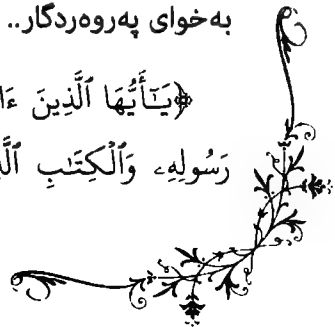 بەخوای پەروەردگار..
﴿يَٰٓأَيُّهَا ٱلَّذِينَ
رَسُولِهِۦ وَٱلْكِتَٰبِ